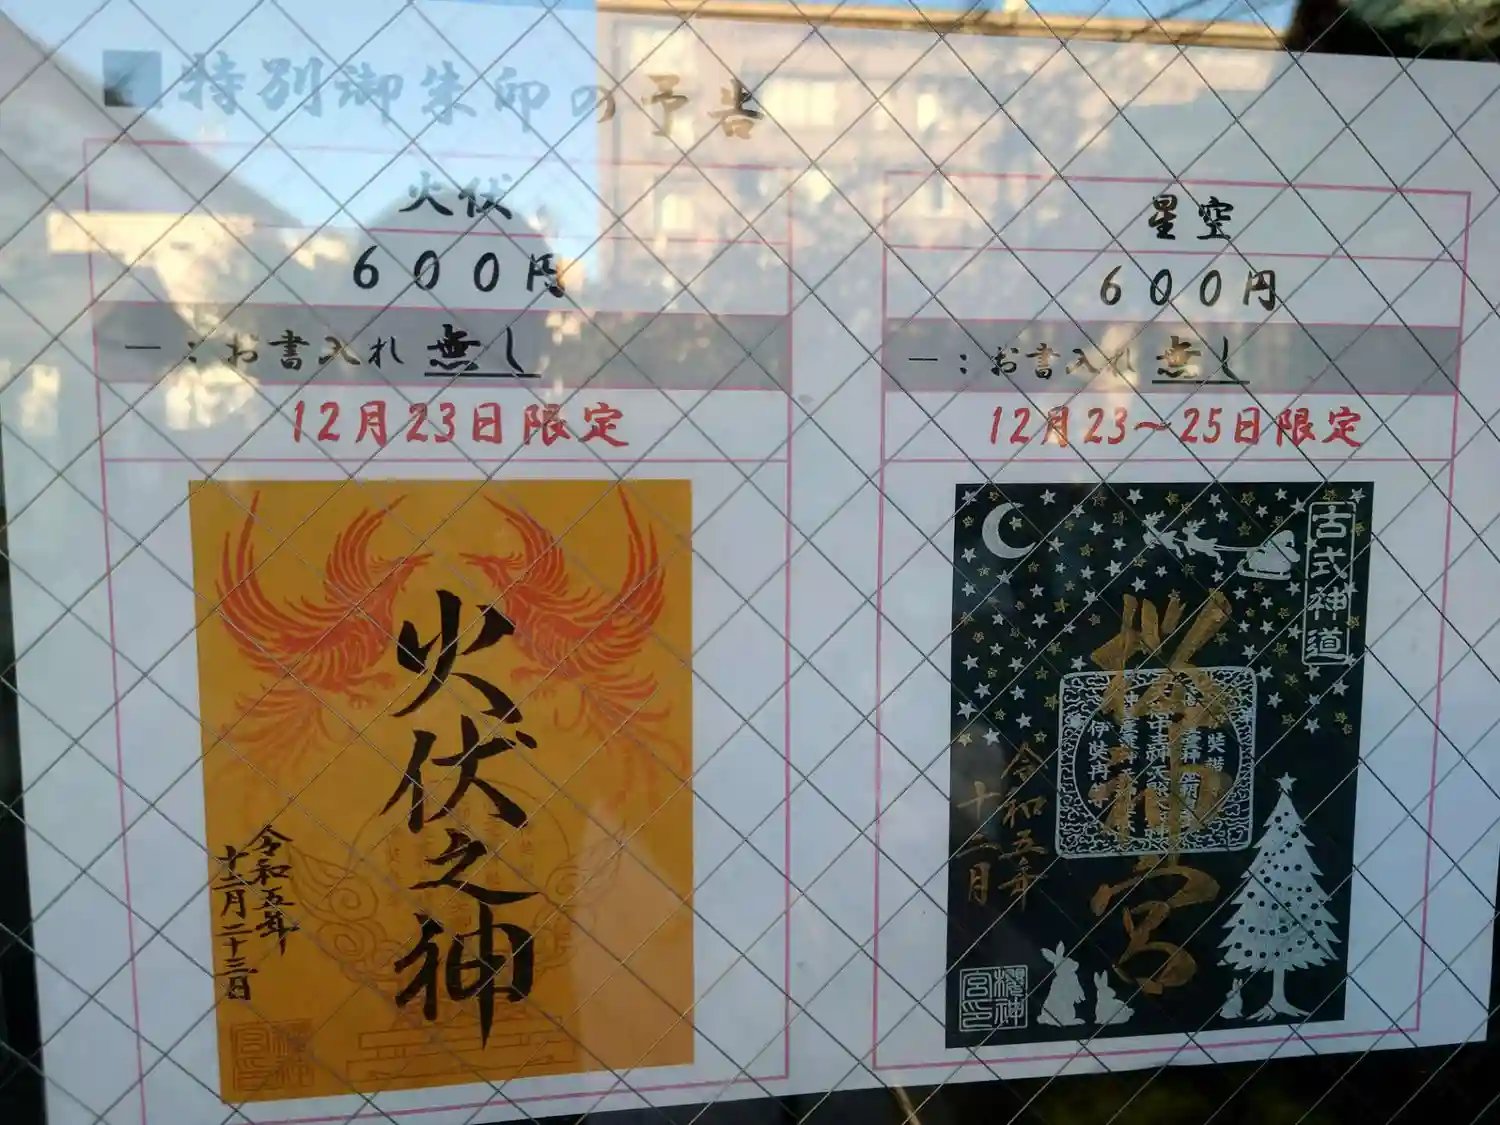 ■特別御朱印の予告
火伏
600円
－：お書入れ 無し
12月23日限定
火伏之神
令和五年
十二月二十三日
星空
600円
－：お書入れ 無し
12月23～25日限定
古式神道
桜神宮
令和五年
十二月
櫻神
宮印